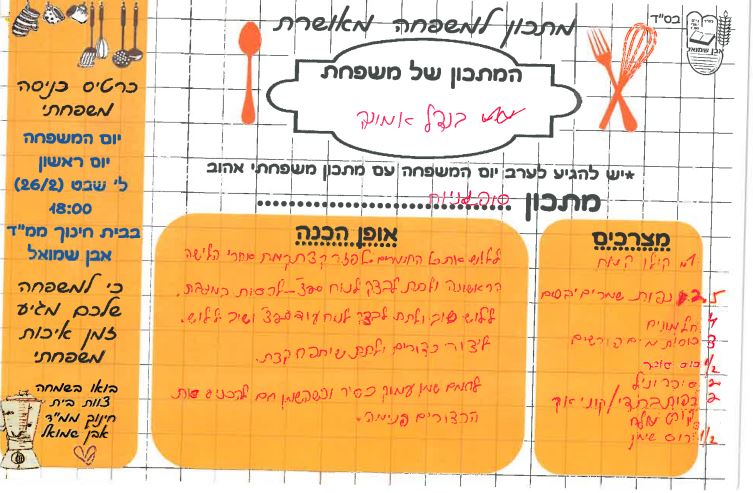 בס"ד
אבן שמואל
מתכון למשפחה מאושרת
המתכון של משפחת
בנדל אמונה
*יש להגיע לערב יום המשפחה עם מתכון משפחתי אהוב
מתכון סופגניות
כרטיס כניסה
משפחתי
יום המשפחה
יום ראשון
ל' שבט (26/2)
18:00
בבית חינוך ממ"ד
אבן שמואל
כי למשפחה
שלכם מגיע
זמן איכות
משפחתי
בואו בשמחה
צוות בית
חינוך ממ"ד
אבן שמואל
מצרכים
1 קילו קמח
2.5 כפות שמרים יבשים
4 חלמונים
3 כוסות מים פושרים
1/2 כוס סוכר
2 סוכר וניל
2 כפות ברנדי/קוניאק
קורט מלח
1/2 כוס שמן
אופן הכנה
ללוש את כל החומרים לפזר קצת קמח אחרי הלישה
הראשונה ולתת לבצק לנוח לכסות במגבת.
ללוש שוב ולתת לבצק לנוח עוד ושוב ללוש.
ליצור כדורים ולתת שיתפח קצת.
לחמם שמן עמוק בסיר וכשהשמן חם להכניס את
הכדורים פנימה.